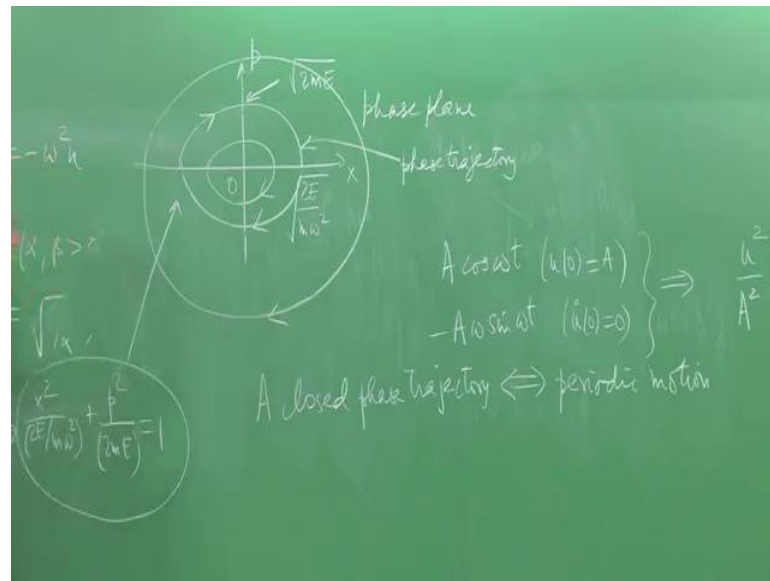 p
√2mE
phase plane
phase trajectory
x
0
√2E/mω²
= -ω²u
(α, β >
A cos ωt (u(0)=A)
-Aω sin ωt (u̇(0)=0)
} ⇒ u²/A²
A closed phase trajectory ⇔ periodic motion
x²/(2E/mω²) + p²/(2mE) = 1